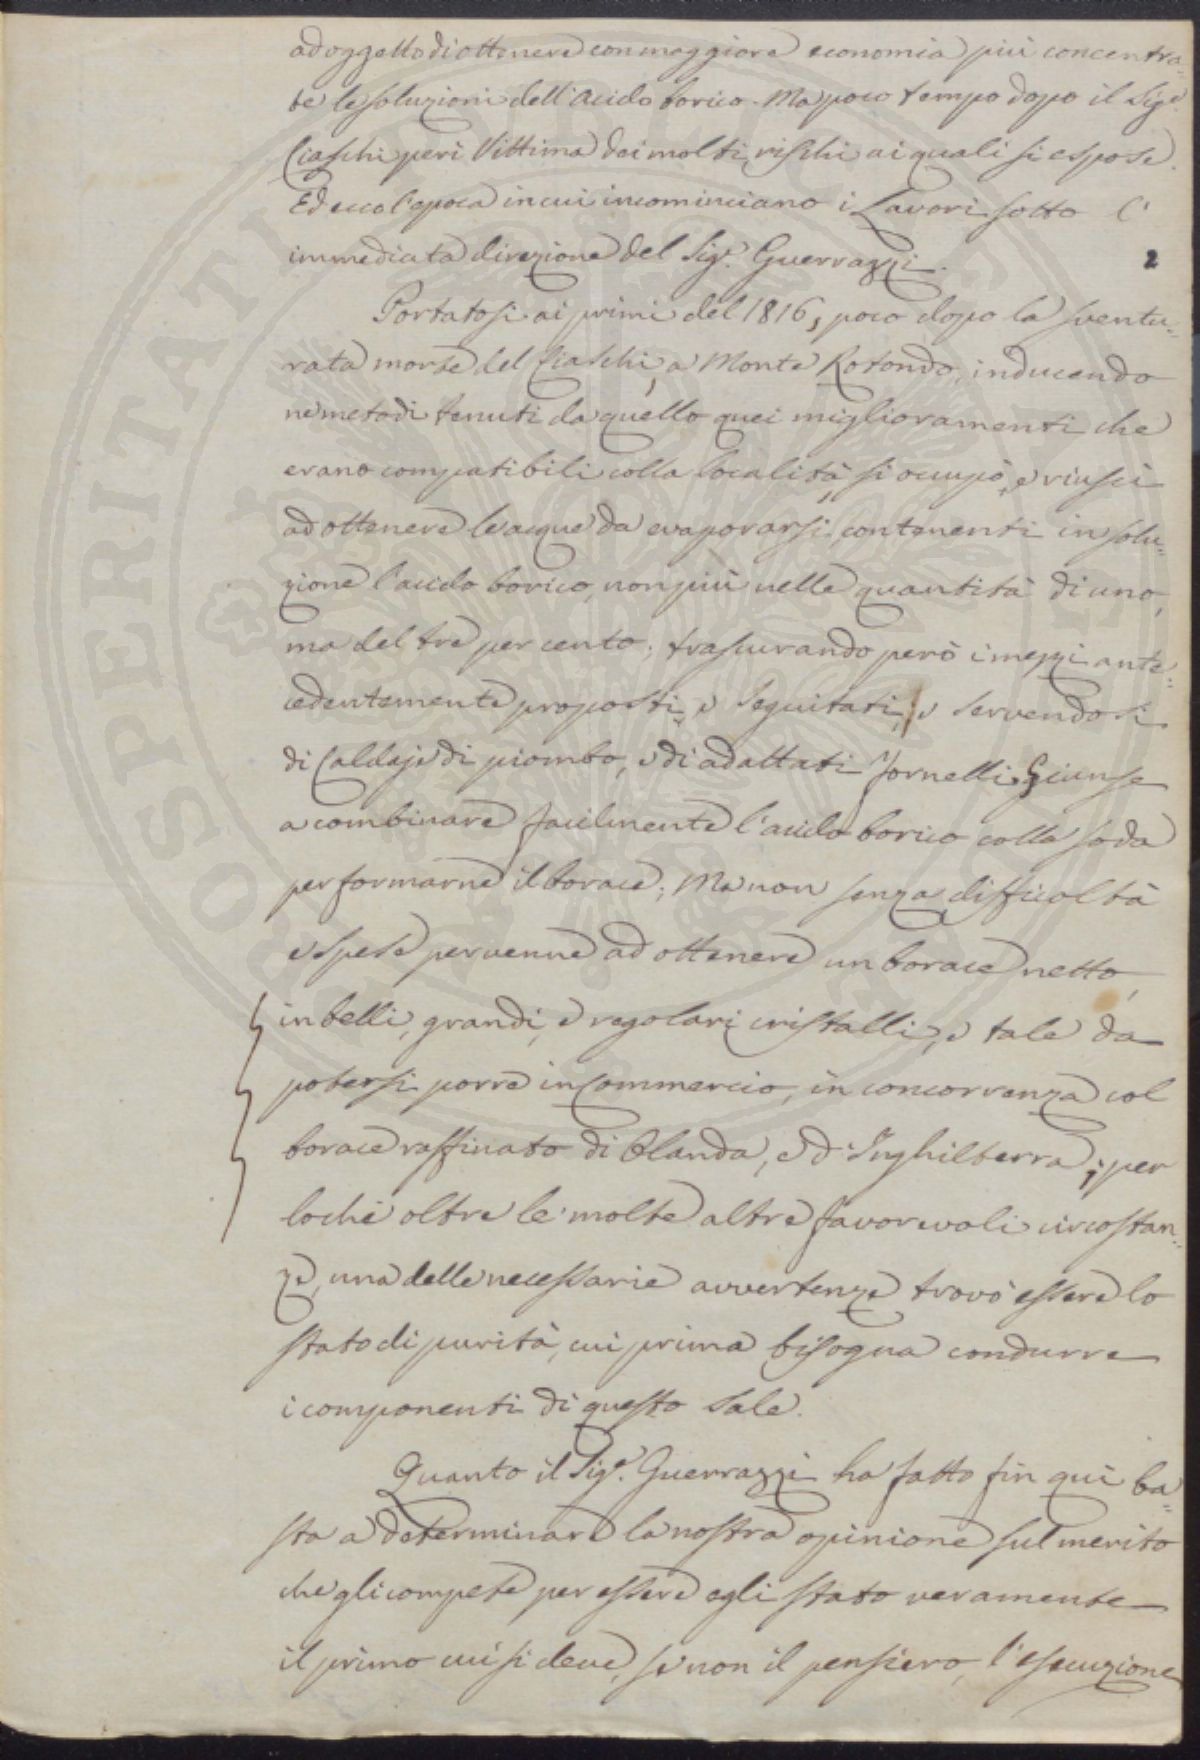 ad oggetto di ottenere con maggiore economia più concentra-
te le soluzioni dell'acido borico. Ma poco tempo dopo il Sigr.
Ciaschi perì Vittima dei molti rischi ai quali si espose.
Ed ecco l'epoca in cui incominciano i Lavori sotto l'
immediata direzione del Sigr. Guerrazzi.
2
Portatosi ai primi del 1816, poco dopo la sventu-
rata morte del Ciaschi, a Monte Rotondo, inducendo
ne metodi tenuti da quello quei miglioramenti che
erano compatibili colla località, si occupò, e riuscì
ad ottenere le acque da evaporarsi, contenenti in solu-
zione l'acido borico, non più nelle quantità di uno,
ma del tre per cento; trascurando però i mezzi ante-
cedentemente proposti, e seguitati, e servendosi
di Caldaje di piombo, e di adattati fornelli. Giunse
a combinare facilmente l'acido borico colla soda
per formarne il borace; Ma non senza difficoltà
e spese pervenne ad ottenere un borace netto,
in belli, grandi, e regolari cristalli, e tale da
potersi porre in Commercio, in concorrenza col
borace raffinato di Olanda, e d'Inghilterra; per
lochè oltre le molte altre favorevoli circostan-
ze, una delle necessarie avvertenze trovò essere lo
stato di purità, cui prima bisogna condurre
i componenti di questo Sale.
Quanto il Sigr. Guerrazzi ha fatto fin qui ba-
sta a determinare la nostra opinione sul merito
che gli compete per essere egli stato veramente
il primo cui si deve, se non il pensiero, l'esecuzione
PROSPERITATI PVBLICAE